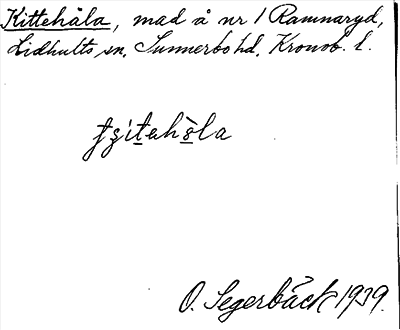 Kittehåla, mad å nr 1 Ramnaryd,
Lidhults sn, Sunnerbo hd, Kronob. l.
tʒitehòla
O. Segerbäck 1939.